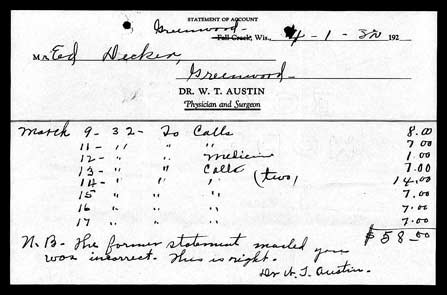 STATEMENT OF ACCOUNT
Greenwood
Fall Creek, Wis., 4-1-32 192
Mr. Ed Decker,
Greenwood
DR. W. T. AUSTIN
Physician and Surgeon
March 9-32- To Calls 8.00
11- " " " 7.00
12- " " Medicine 1.00
13- " " Calls 7.00
14- " " " (two) 14.00
15 " " " 7.00
16 " " " 7.00
17 " " " 7.00
N.B- The former statement mailed you $58.00
was incorrect. This is right.
Dr W.T. Austin.